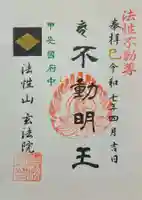 法性不動尊
奉拝 令和七年四月吉日
不動明王
甲斐國府中
法性山 玄法院